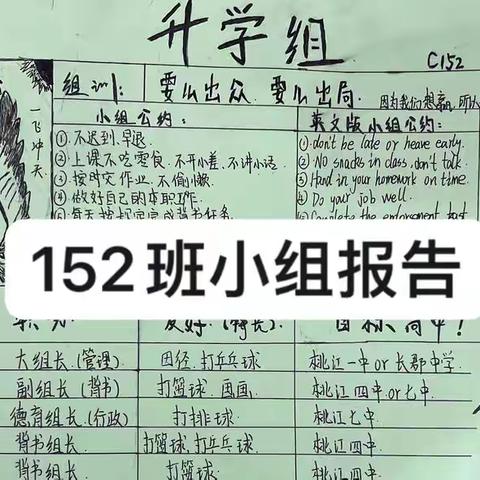 升学组
C152
组训: 要么出众 要么出局. 因为我们想赢, 所以
一飞冲天
小组公约:
①.不迟到.早退.
②.上课不吃零食.不开小差.不讲小话.
③.按时交作业.不偷懒.
④.做好自己的本职工作.
英文版小组公约:
①.don't be late or heave early.
②.No snacks in class, don't talk.
③.Hand in your homework on time.
④.Do your job well.
152班小组报告
爱好.(特长).
目标高中!
大组长.(管理) 田径.打乒乓球 桃江一中 or 长郡中学
副组长 (背书) 打篮球.画画. 桃江四中 or 七中
德育组长.(行政) 打排球. 桃江七中
背书组长. 打篮球.打乒乓球. 桃江四中.
背书组长. 打篮球. 桃江四中.